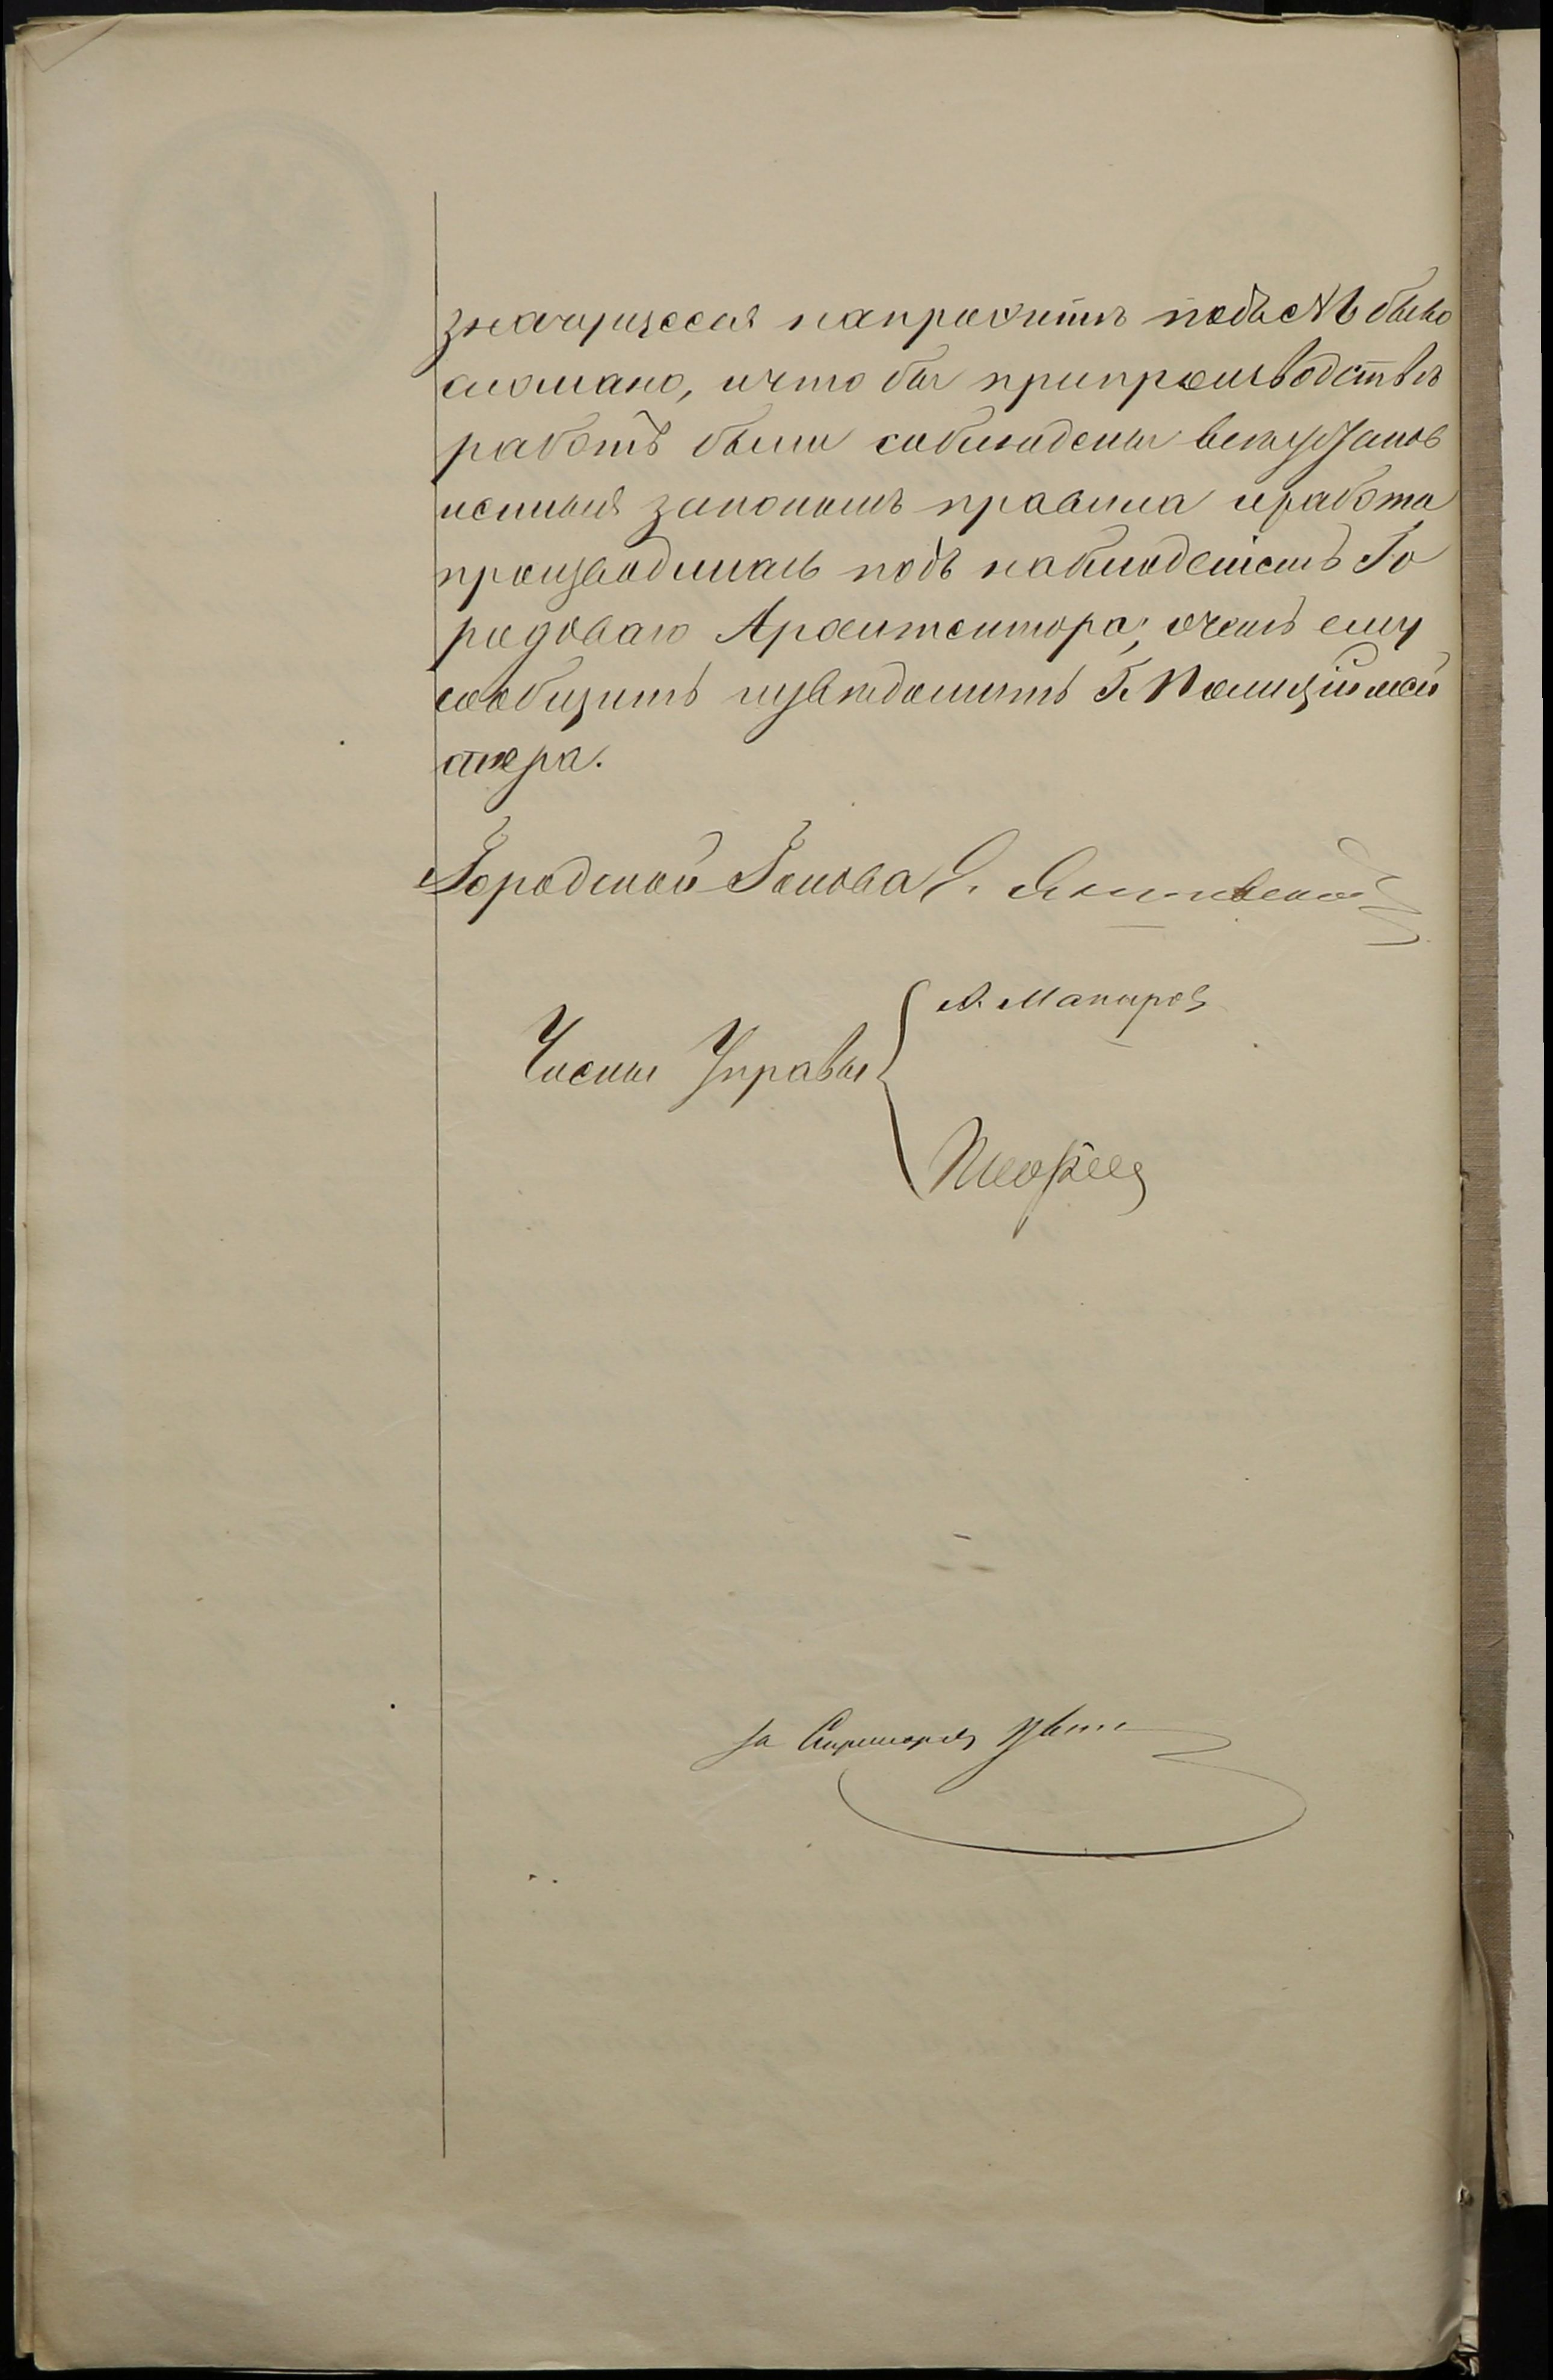 значущееся на проэктѣ подъ №6 было
сломано, и что бы при производствѣ
работъ были соблюдены всѣ установ
ленныя закономъ правила и работа
производилась подъ наблюденіемъ Го
родоваго Архитектора; о чемъ ему
сообщить и увѣдомить Г. Полицiймей
стера.
Городской Голова
А. Макаров
Члены Управы
за Секретаря